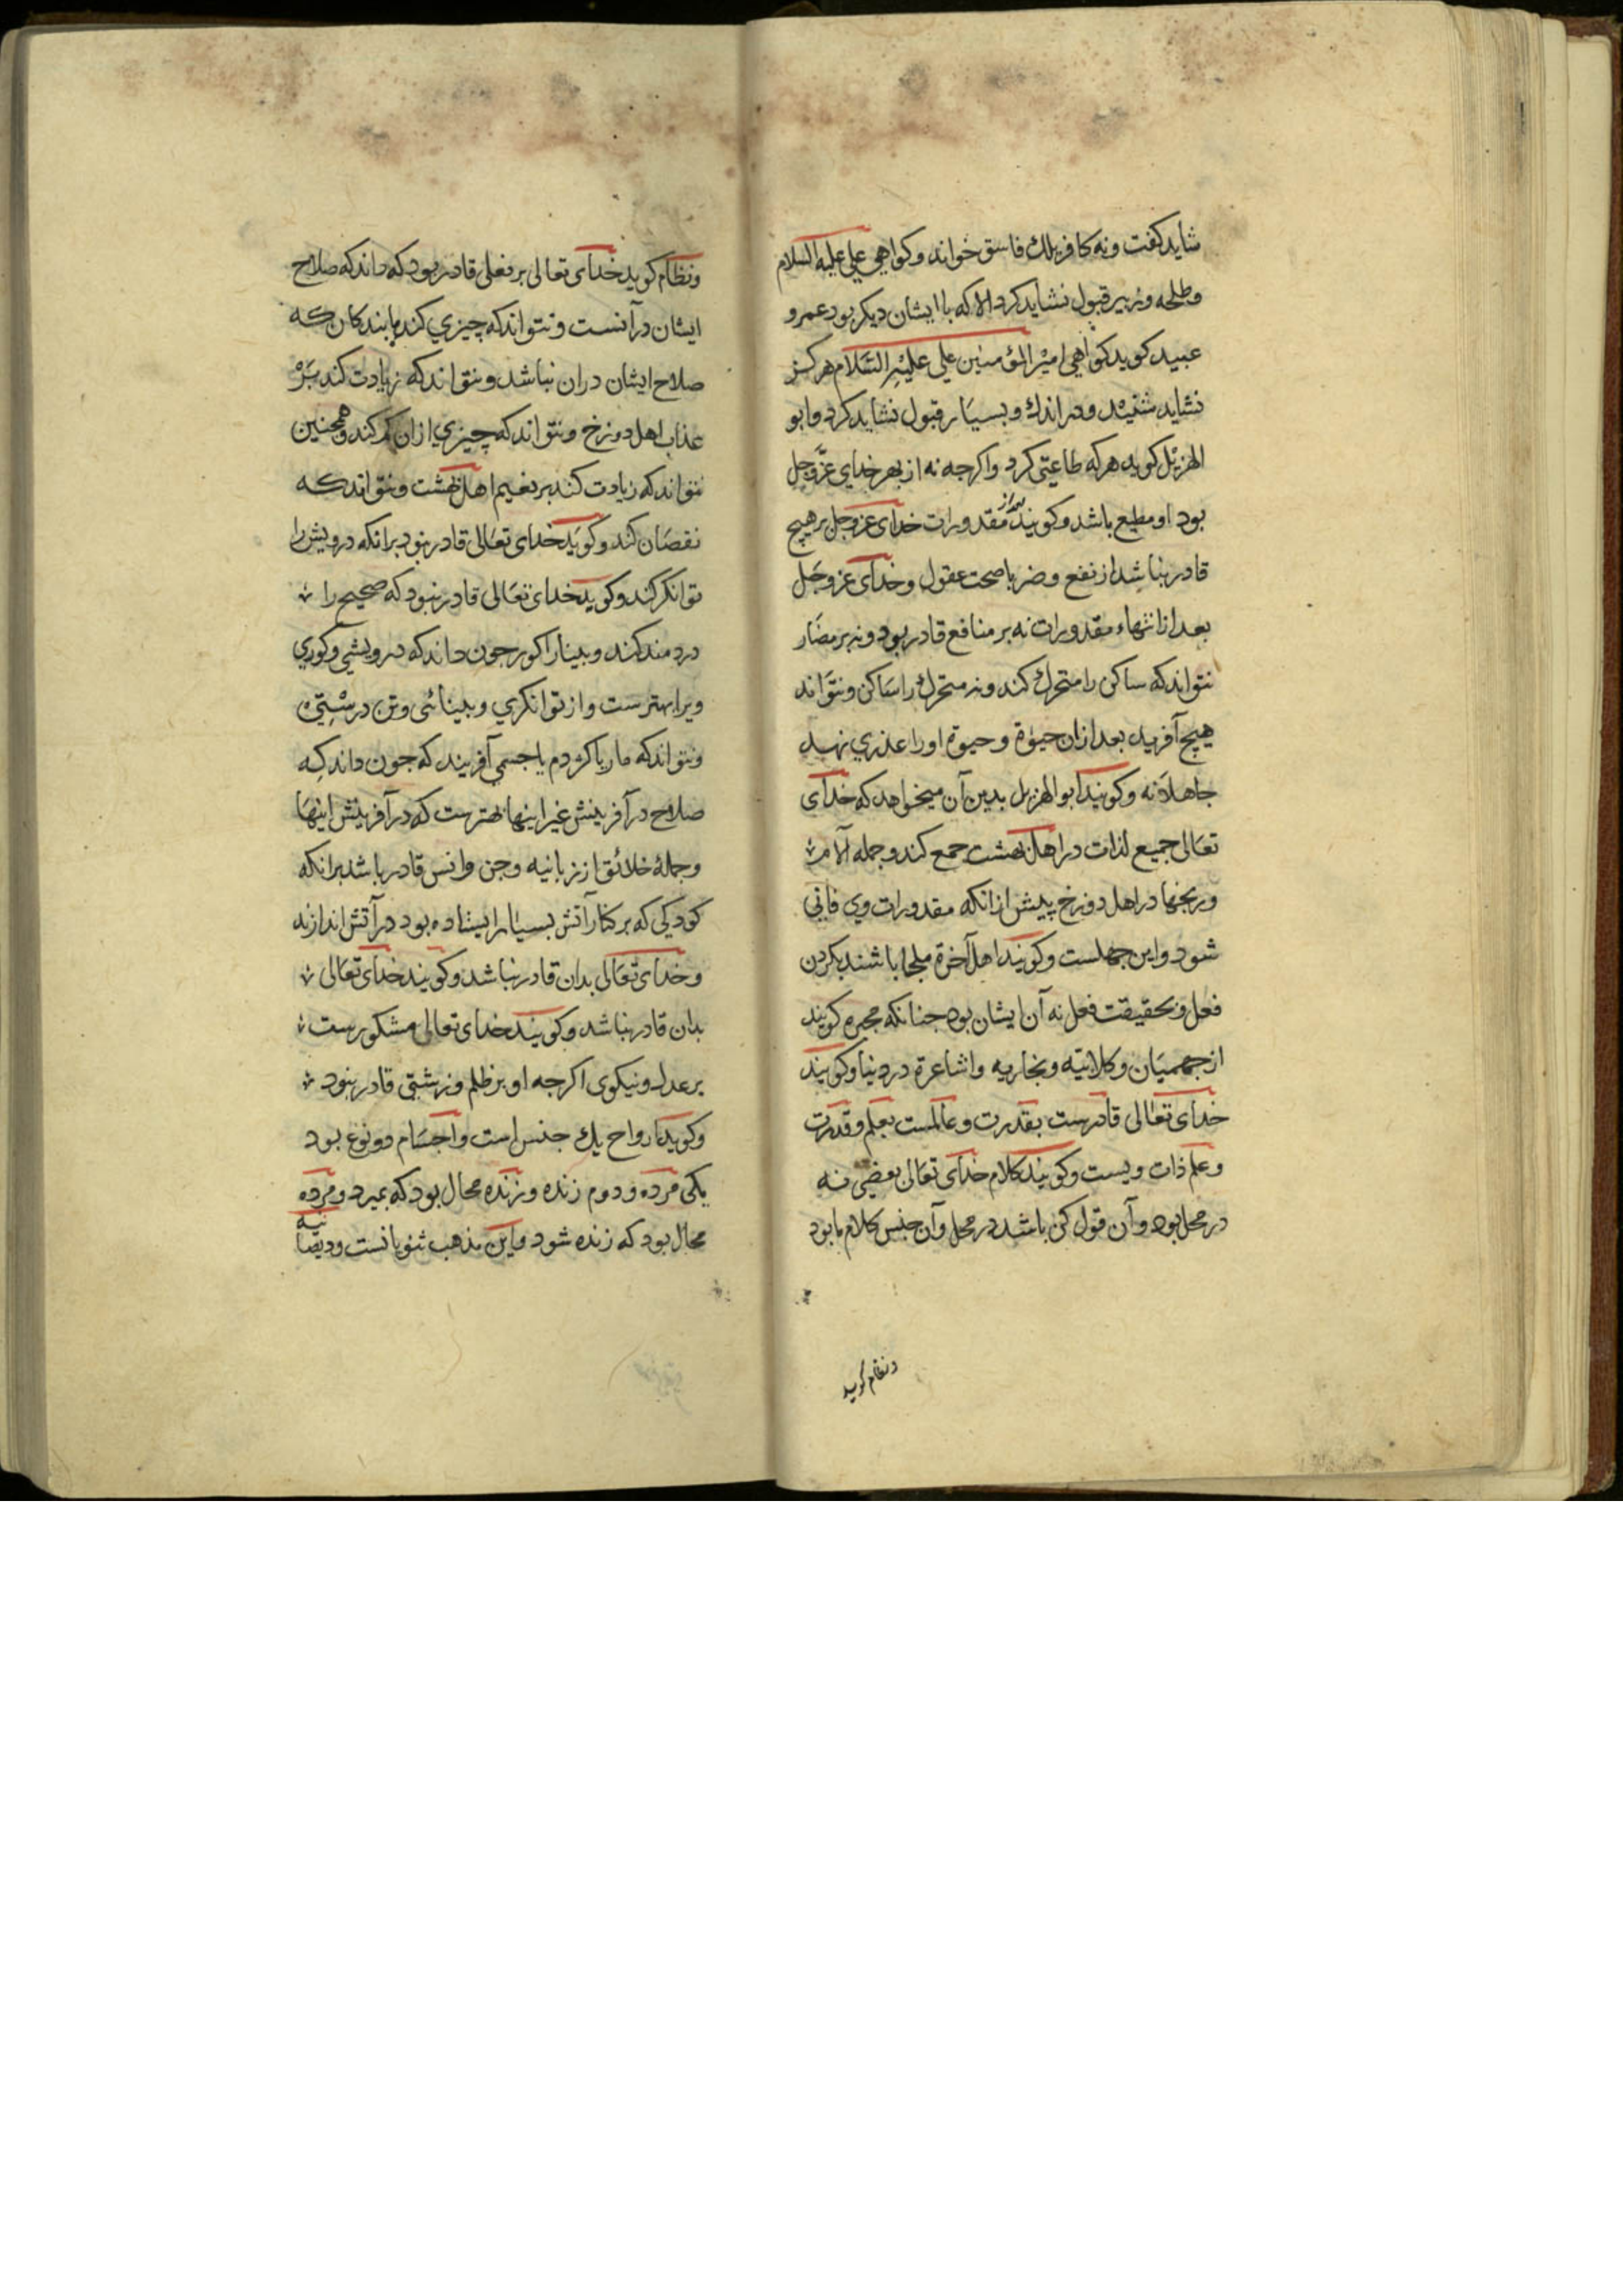 شاید کفت ونه کافر بلك فاسق خواند وکواهی علي علیه السلام
وطلحه وزبیر قبول نشاید کرد الا که باایشان دیکر بود عمرو
عبید کوید کواهی امیر المؤمنین علي علیه السلام هرکز
نشاید شنید ودر اندك وبسیار قبول نشاید کرد وابو
الهزیل کوید هرکه طاعتی کرد واکرجه نه از بهر خدای عزّوجل
بود او مطیع باشد وکویند بعد از مقدورات خدای عزوجل بر هیچ
قادر نباشد از نفع وضر باصحت عقول وخدای عزوجل
بعد از انتهاء مقدورات نه بر منافع قادر بود ونه بر مضار
نتواند که ساکن را متحرك کند ونه متحرك را ساکن ونتواند
هیچ آفرید بعد ازان حیوة وحیوة اورا عذری نهد
جاهلانه وکویند ابو الهزیل بدین آن میخواهد که خدای
تعالی جمیع لذات در اهل بهشت جمع کند وجمله آلام
ورنجها در اهل دوزخ پیش ازانکه مقدورات وي فانی
شود واین جهلست وکویند اهل آخرة ملجا باشند بکردن
فعل وبحقیقت فعل نه آن ایشان بود جنانکه مجبره کویند
از جهمیان وکلابیه ونجاریه واشاعرة در دنیا وکویند
خدای تعالی قادرست بقدرت وعالمست بعلم وقدرت
وعلم ذات ویست وکویند کلام خدای تعالی بعضی نه
در محل بود وآن قول کن باشد در محل وآن جنس کلام ما بود
ونظام کوید
ونظام کوید خدای تعالی بر فعلی قادر بود که داند که صلاح
ایشان درآنست ونتواند که چیزي کند بابندکان که
صلاح ایشان دران نباشد ونتواند که زیادت کند بر
عذاب اهل دوزخ ونتواند که چیزي ازان کم کند وهمجنین
نتواند که زیادت کند بر نعیم اهل بهشت ونتواند که
نقصان کند وکوید خدای تعالی قادر نبود برانکه درویش را
توانکر کند وکوید خدای تعالی قادر نبود که صحیح را
دردمند کند وبینا را کور جون داند که درویشی وکوري
ویرا بهترست واز توانکري وبینائی وتن درستی
ونتواند که مار یا کژدم یا جسمی آفریند که جون داند که
صلاح در آفرینش غیر اینها بهترست که در آفرینش اینها
وجملهٔ خلائق از زبانیه وجن وانس قادر باشد برانکه
کودکی که بر کنار آتش بسیار ایستاده بود در آتش اندازند
وخدای تعالی بدان قادر نباشد وکویند خدای تعالی
بدان قادر نباشد وکویند خدای تعالی مشکورست
بر عدل ونیکوی اکرجه او بر ظلم وزشتی قادر نبود
وکوید ارواح یك جنس است واجسام دو نوع بود
یکی مرده ودوم زنده وزنده محال بود که بمیرد ومرده
محال بود که زنده شود واین مذهب ثنویانست ودیصانیه